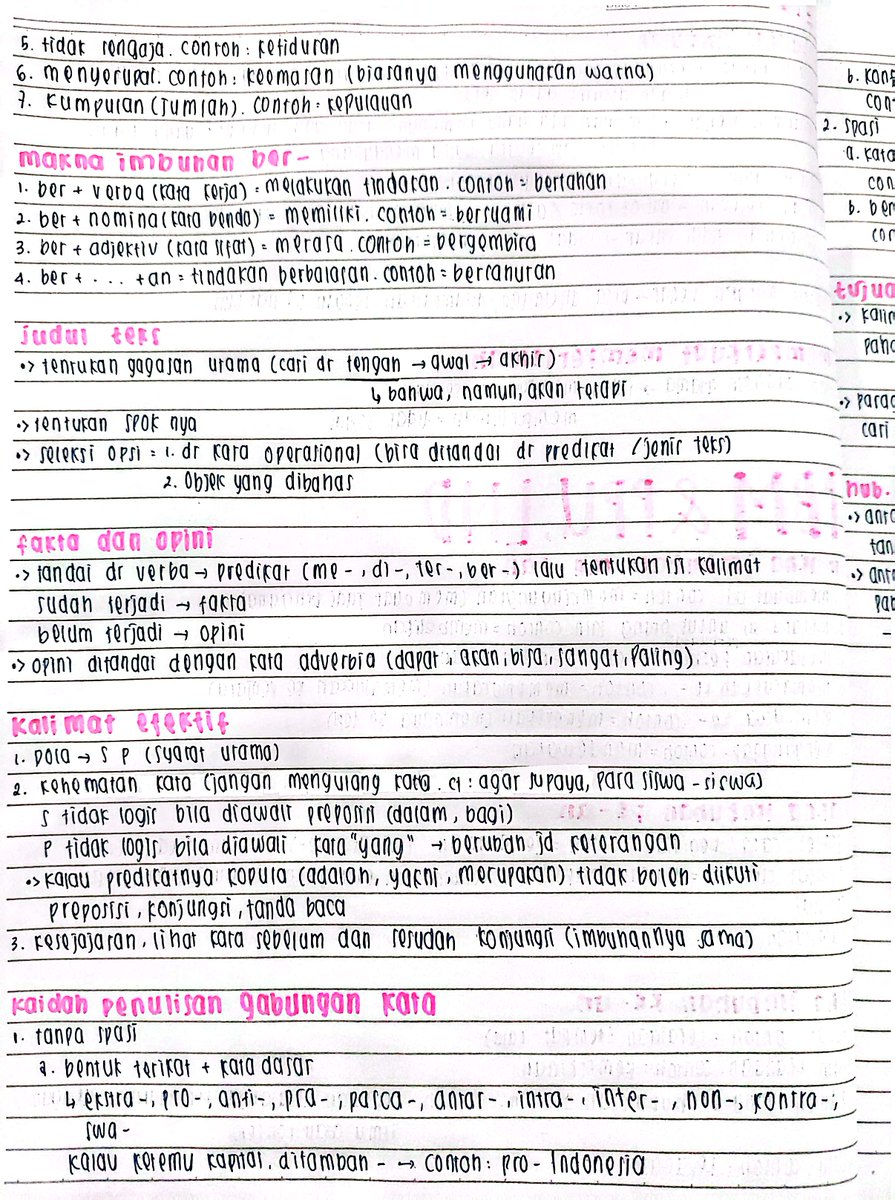 5. tidak sengaja. contoh: ketiduran
6. menyerupai. contoh: keemasan (biasanya menggunakan warna)
7. kumpulan (jumlah). contoh: kepulauan
makna imbuhan ber-
1. ber + verba (kata kerja) = melakukan tindakan. contoh = bertahan
2. ber + nomina (kata benda) = memiliki. contoh = bersuami
3. ber + adjektiv (kata sifat) = merasa. contoh = bergembira
4. ber + ... + an = tindakan berbalasan. contoh = bersahutan
judul teks
•> tentukan gagasan utama (cari dr tengah → awal → akhir)
↳ bahwa, namun, akan tetapi
•> tentukan SPOK nya
•> seleksi opsi = 1. dr kata operasional (bisa ditandai dr predikat / jenis teks)
2. Objek yang dibahas
fakta dan opini
•> tandai dr verba → predikat (me-, di-, ter-, ber-) lalu tentukan isi kalimat
sudah terjadi → fakta
belum terjadi → opini
•> opini ditandai dengan kata adverbia (dapat, akan, bisa, sangat, paling)
kalimat efektif
1. pola → S P (syarat utama)
2. kehematan kata (jangan mengulang kata. ct: agar supaya, para siswa-siswa)
S tidak logis bila diawali preposisi (dalam, bagi)
P tidak logis bila diawali kata "yang" → berubah jd keterangan
•> kalau predikatnya kopula (adalah, yakni, merupakan) tidak boleh diikuti
preposisi, konjungsi, tanda baca
3. kesejajaran, lihat kata sebelum dan sesudah konjungsi (imbuhannya sama)
kaidah penulisan gabungan kata
1. tanpa spasi
a. bentuk terikat + kata dasar
↳ ekstra-, pro-, anti-, pra-, pasca-, antar-, intra-, inter-, non-, kontra-,
swa-
kalau ketemu kapital, ditambah - → contoh: pro-Indonesia
2. spasi
a. kata
b. ber
•> kalim
•> parag
cari
hub.